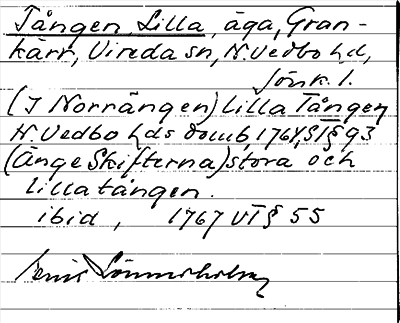 Tången, Lilla, äga, Gran-
kärr, Vireda sn, N. Vedbo hd,
Jönk. l.
(I Norrängen) lilla Tången
N Vedbo hds domb, 1764, S I § 93
(Änge Skifterna) stora och
lilla tången.
ibid, 1767 VI § 55